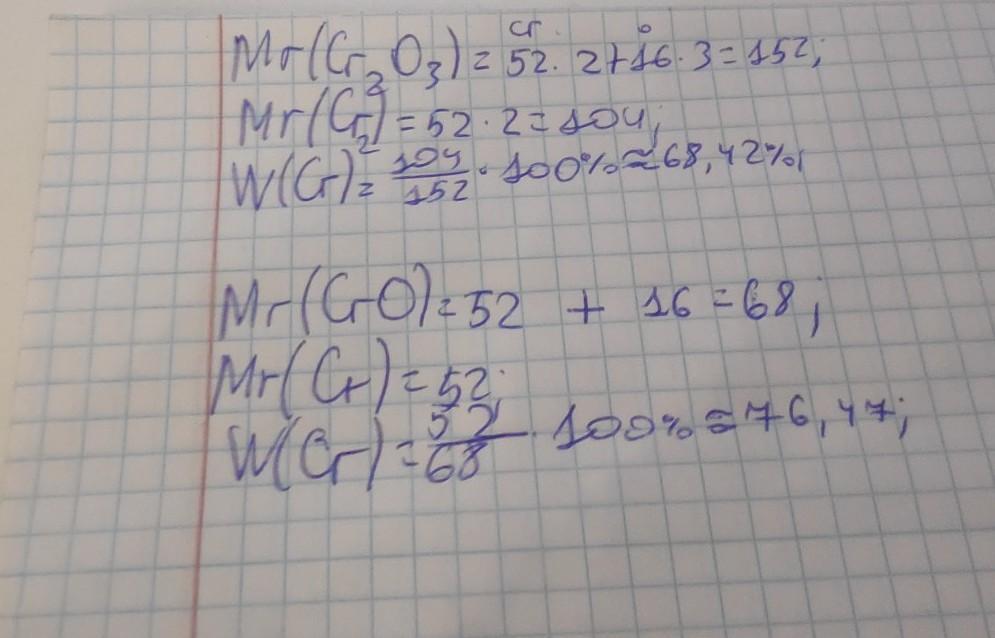 Cr. O
Mr(Cr₂O₃) = 52 · 2 + 16 · 3 = 152;
Mr(Cr₂) = 52 · 2 = 104;
W(Cr) = 104/152 · 100% ≈ 68,42%;
Mr(CrO) = 52 + 16 = 68;
Mr(Cr) = 52;
W(Cr) = 52/68 · 100% ≈ 76,47;